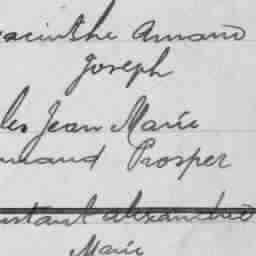 acinthe Armand
Joseph
les Jean Marie
mand Prosper
nstant alexandre
Marie